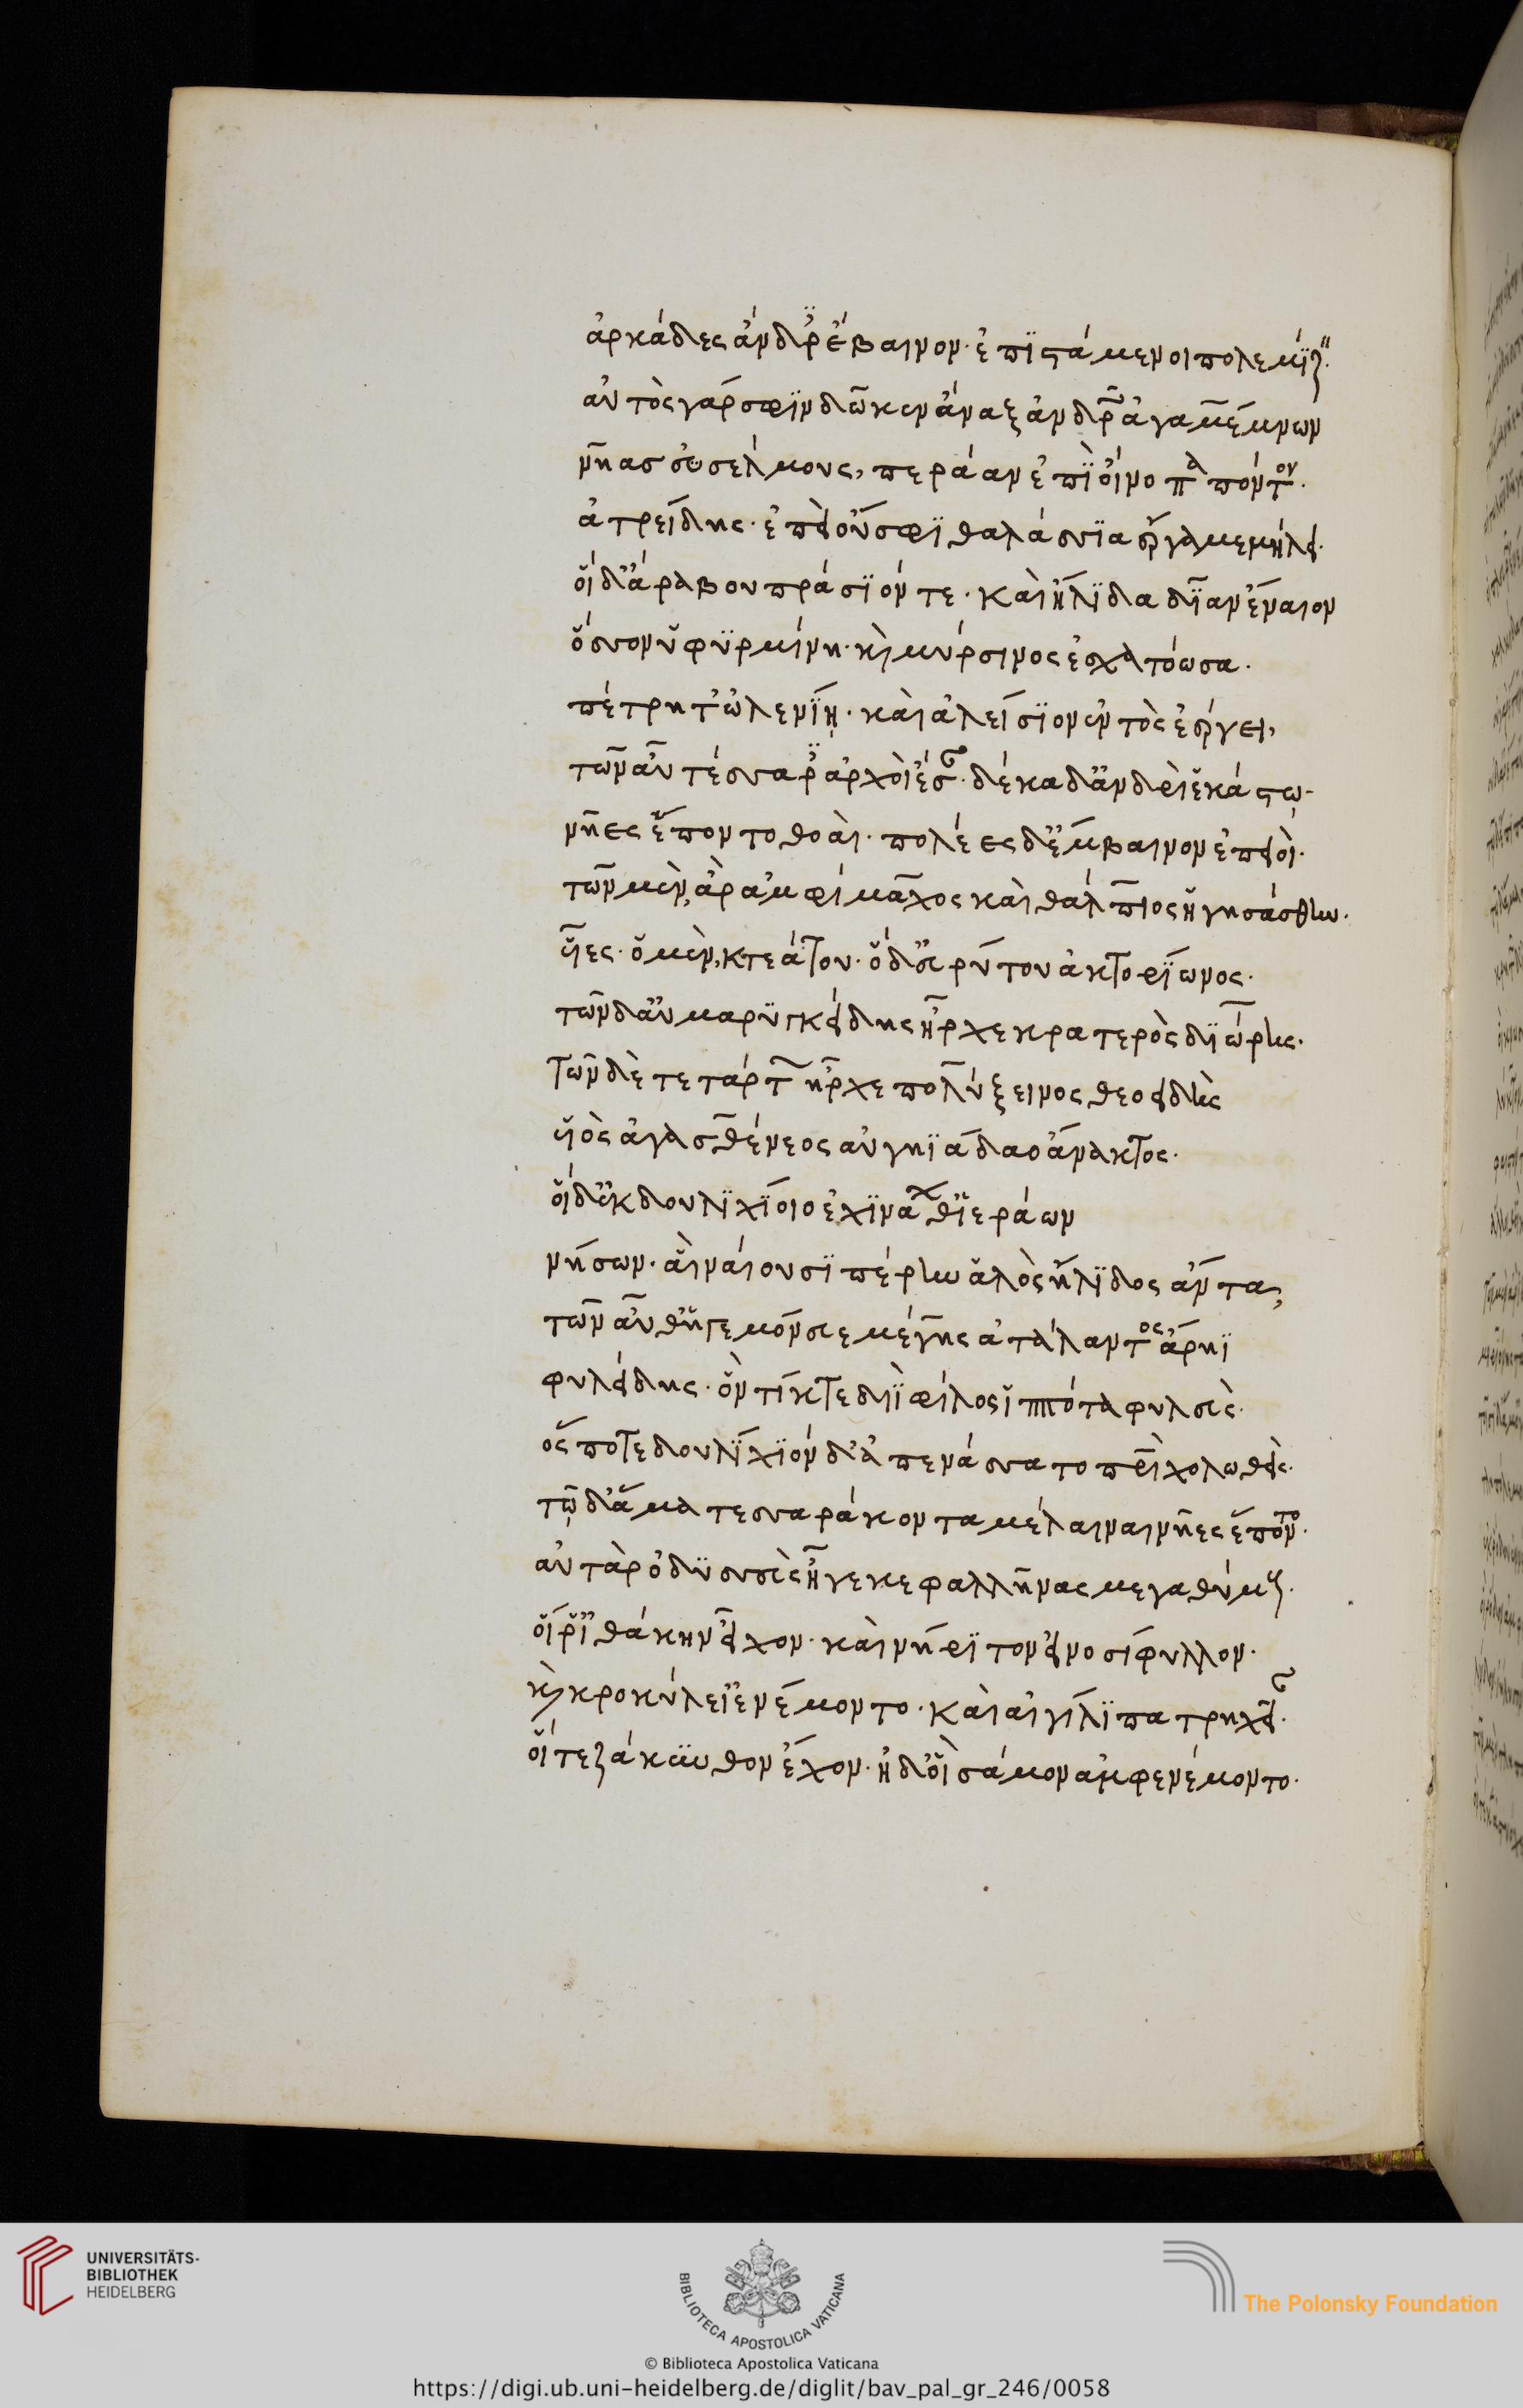 ἀρκάδες ἄνδρες ἔβαινον· ἐπϊστάμενοι πολεμΐζειν·
αὐτὸς γάρ σφϊν δῶκεν ἄναξ ἀνδρῶν ἀγαμέμνων
νῆας ἐϋσέλμους, περάαν ἐπὶ οἴνοπα πόντον·
ἀτρείδης· ἐπεὶ οὔ σφϊ θαλάσσϊα ἔργα μεμήλει·
οἳ δ' ἄρα βουπράσϊόν τε· καὶ ἤλϊδα δῖαν ἔναιον
ὅσσον ὑφ' ὑρμίνη· καὶ μύρσινος ἐσχατόωσα·
πέτρη τ' ὠλενΐη· καὶ ἀλείσϊον ἐντὸς ἐέργει,
τῶν αὖ τέσσαρες ἀρχοὶ ἔσαν· δέκα δ' ἀνδρὶ ἑκάστω·
νῆες ἕποντο θοαὶ· πολέες δ' ἔμβαινον ἐπειοὶ·
τῶν μὲν, ἄρ ἀμφίμαχος καὶ θάλπιος ἡγησάσθην·
υἷες· ὃ μὲν, κτεάτου· ὃ δ' εὐρύτου ἀκτορΐωνος·
τῶν δ' αὖ μαρϋγκείδης ἦρχε κρατερὸς δϊώρης·
τῶν δὲ τετάρτων ἦρχε πολύξεινος θεοειδὴς
υἱὸς ἀγασθένεος αὐγηϊάδαο ἄνακτος·
οἳ δ' ἐκ δουλϊχΐοιο ἐχϊνάων θ' ἱεράων
νήσων· αἳ ναίουσϊ πέρην ἁλὸς ἤλϊδος ἄντα,
τῶν αὖθ' ἡγεμόνευε μέγης ἀτάλαντος ἄρηϊ
φυλείδης· ὃν τίκτε διῒ φίλος ἱππότα φυλεὺς·
ὅς ποτε δουλΐχϊόνδ' ἀπενάσσατο πατρὶ χολωθεὶς·
τῷ δ' ἅμα τεσσαράκοντα μέλαιναι νῆες ἕποντο·
αὐτὰρ ὀδϋσσεὺς ἦγε κεφαλλῆνας μεγαθύμους·
οἵ ῥ' ἰθάκην εἶχον· καὶ νήρϊτον εἰνοσίφυλλον·
καὶ κροκύλει' ἐνέμοντο· καὶ αἰγίλϊπα τρηχεῖαν·
οἵ τε ζάκϋνθον ἔχον· ἠδ' οἳ σάμον ἀμφενέμοντο·
UNIVERSITÄTS-
BIBLIOTHEK
HEIDELBERG
BIBLIOTECA APOSTOLICA VATICANA
The Polonsky Foundation
© Biblioteca Apostolica Vaticana
https://digi.ub.uni-heidelberg.de/diglit/bav_pal_gr_246/0058